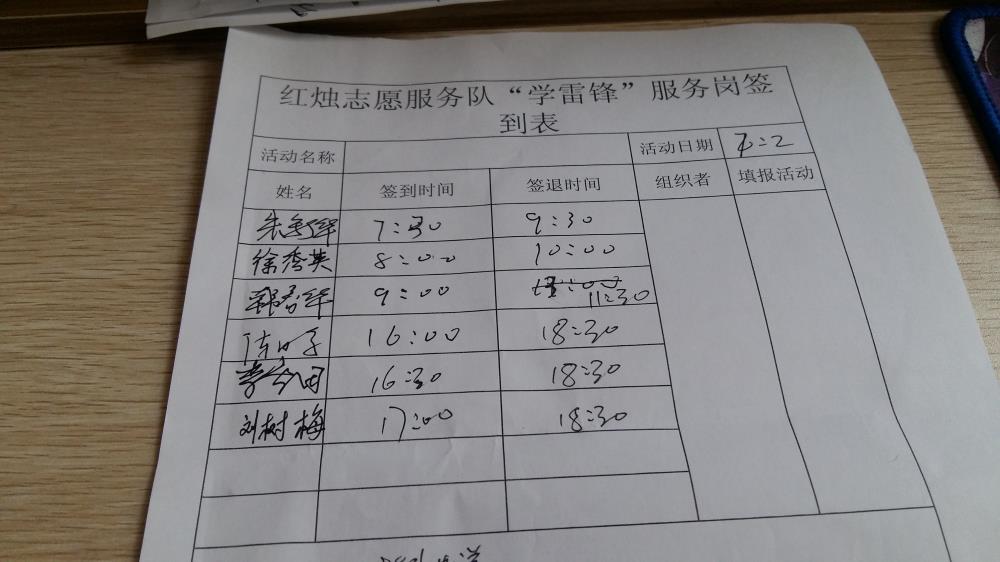 红烛志愿服务队“学雷锋”服务岗签
到表
活动名称 活动日期
姓名 签到时间 签退时间 组织者 填报活动
7:30 9:30
徐秀英 8:00 10:00
9:00 11:30
16:00 18:30
16:30 18:30
刘树梅 17:00 18:30